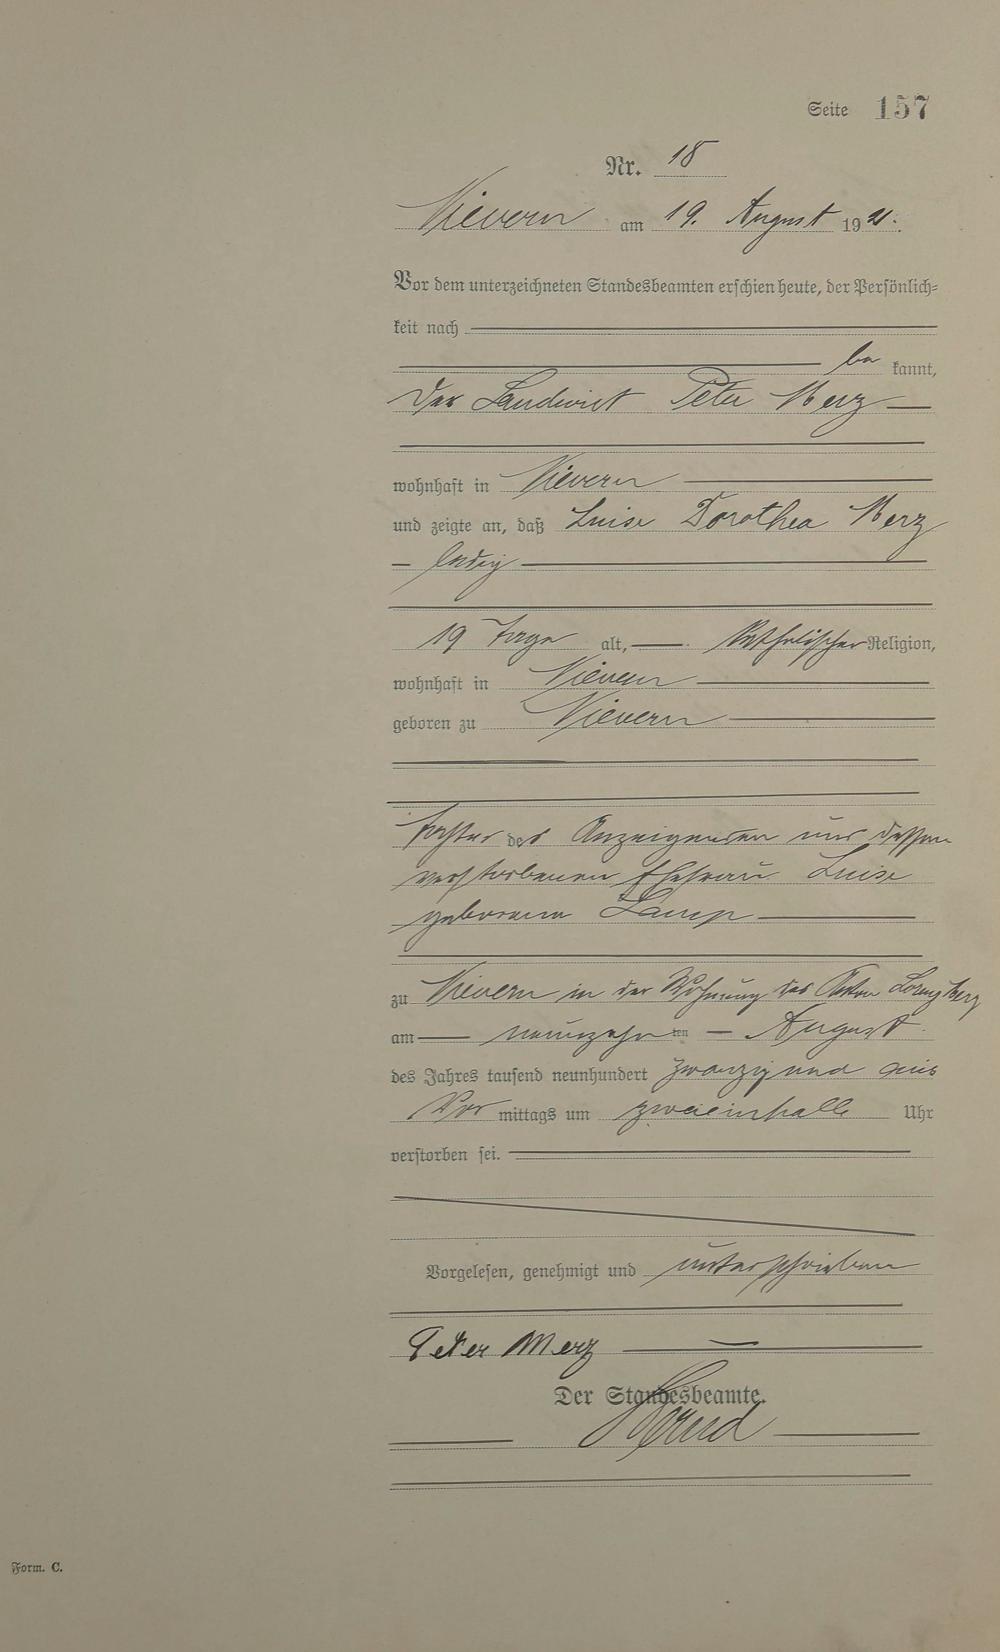 Seite 157
Nr. 18
Nievern am 19. August 1921.
Vor dem unterzeichneten Standesbeamten erschien heute, der Persönlich-
keit nach
be kannt,
der Landwirt Peter Merz
wohnhaft in Nievern
und zeigte an, daß Luise Dorothea Merz
ledig
19 Tage alt, katholischer Religion,
wohnhaft in Nievern
geboren zu Nievern
Tochter des Anzeigenden und dessen
verstorbenen Ehefrau Luise
geborene
zu Nievern in der Wohnung des Lorenz Merz
am neunzehn ten August
des Jahres tausend neunhundert zwanzig und eins
Vor mittags um zweieinhalb Uhr
verstorben sei.
Vorgelesen, genehmigt und unterschrieben
Peter Merz
Der Standesbeamte.
Form. C.